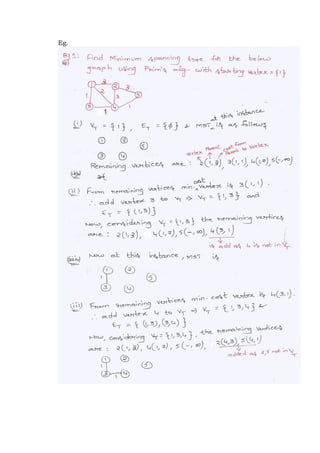 Eg.
Q1:- Find Minimum spanning tree for the below
graph using Prim's alg. with starting vertex = {1}
1 3 2 3
1 2 3 5
3 1 4 1
at this instance
(i) VT = {1}, ET = {∅} & MST is as follows
1 2
5
3 4
vertex Parent cost from Parent to vertex
Remaining vertices are : 2(1,3), 3(1,1), 4(1,2), 5(-,∞)
(ii) From remaining vertices min. cost vertex is 3(1,1).
∴ add vertex 3 to VT ⇒ VT = {1,3} and
ET = {(1,3)}
Now, considering VT = {1,3} the remaining vertices
are : 2(1,3), 4(1,2), 5(-,∞), 4(3,1)
is added as 4 is not in VT
Now at this instance, MST is
1 2
1 5
3 4
iii) From remaining vertices min. cost vertex is 4(3,1).
∴ add vertex 4 to VT ⇒ VT = {1,3,4} &
ET = {(1,3),(3,4)}
Now, considering VT = {1,3,4}, the remaining vertices
are : 2(1,3), 4(1,2), 5(-,∞), 2(4,3), 5(4,1)
added as 2,5 not in VT
1 2
1 5
3 1 4